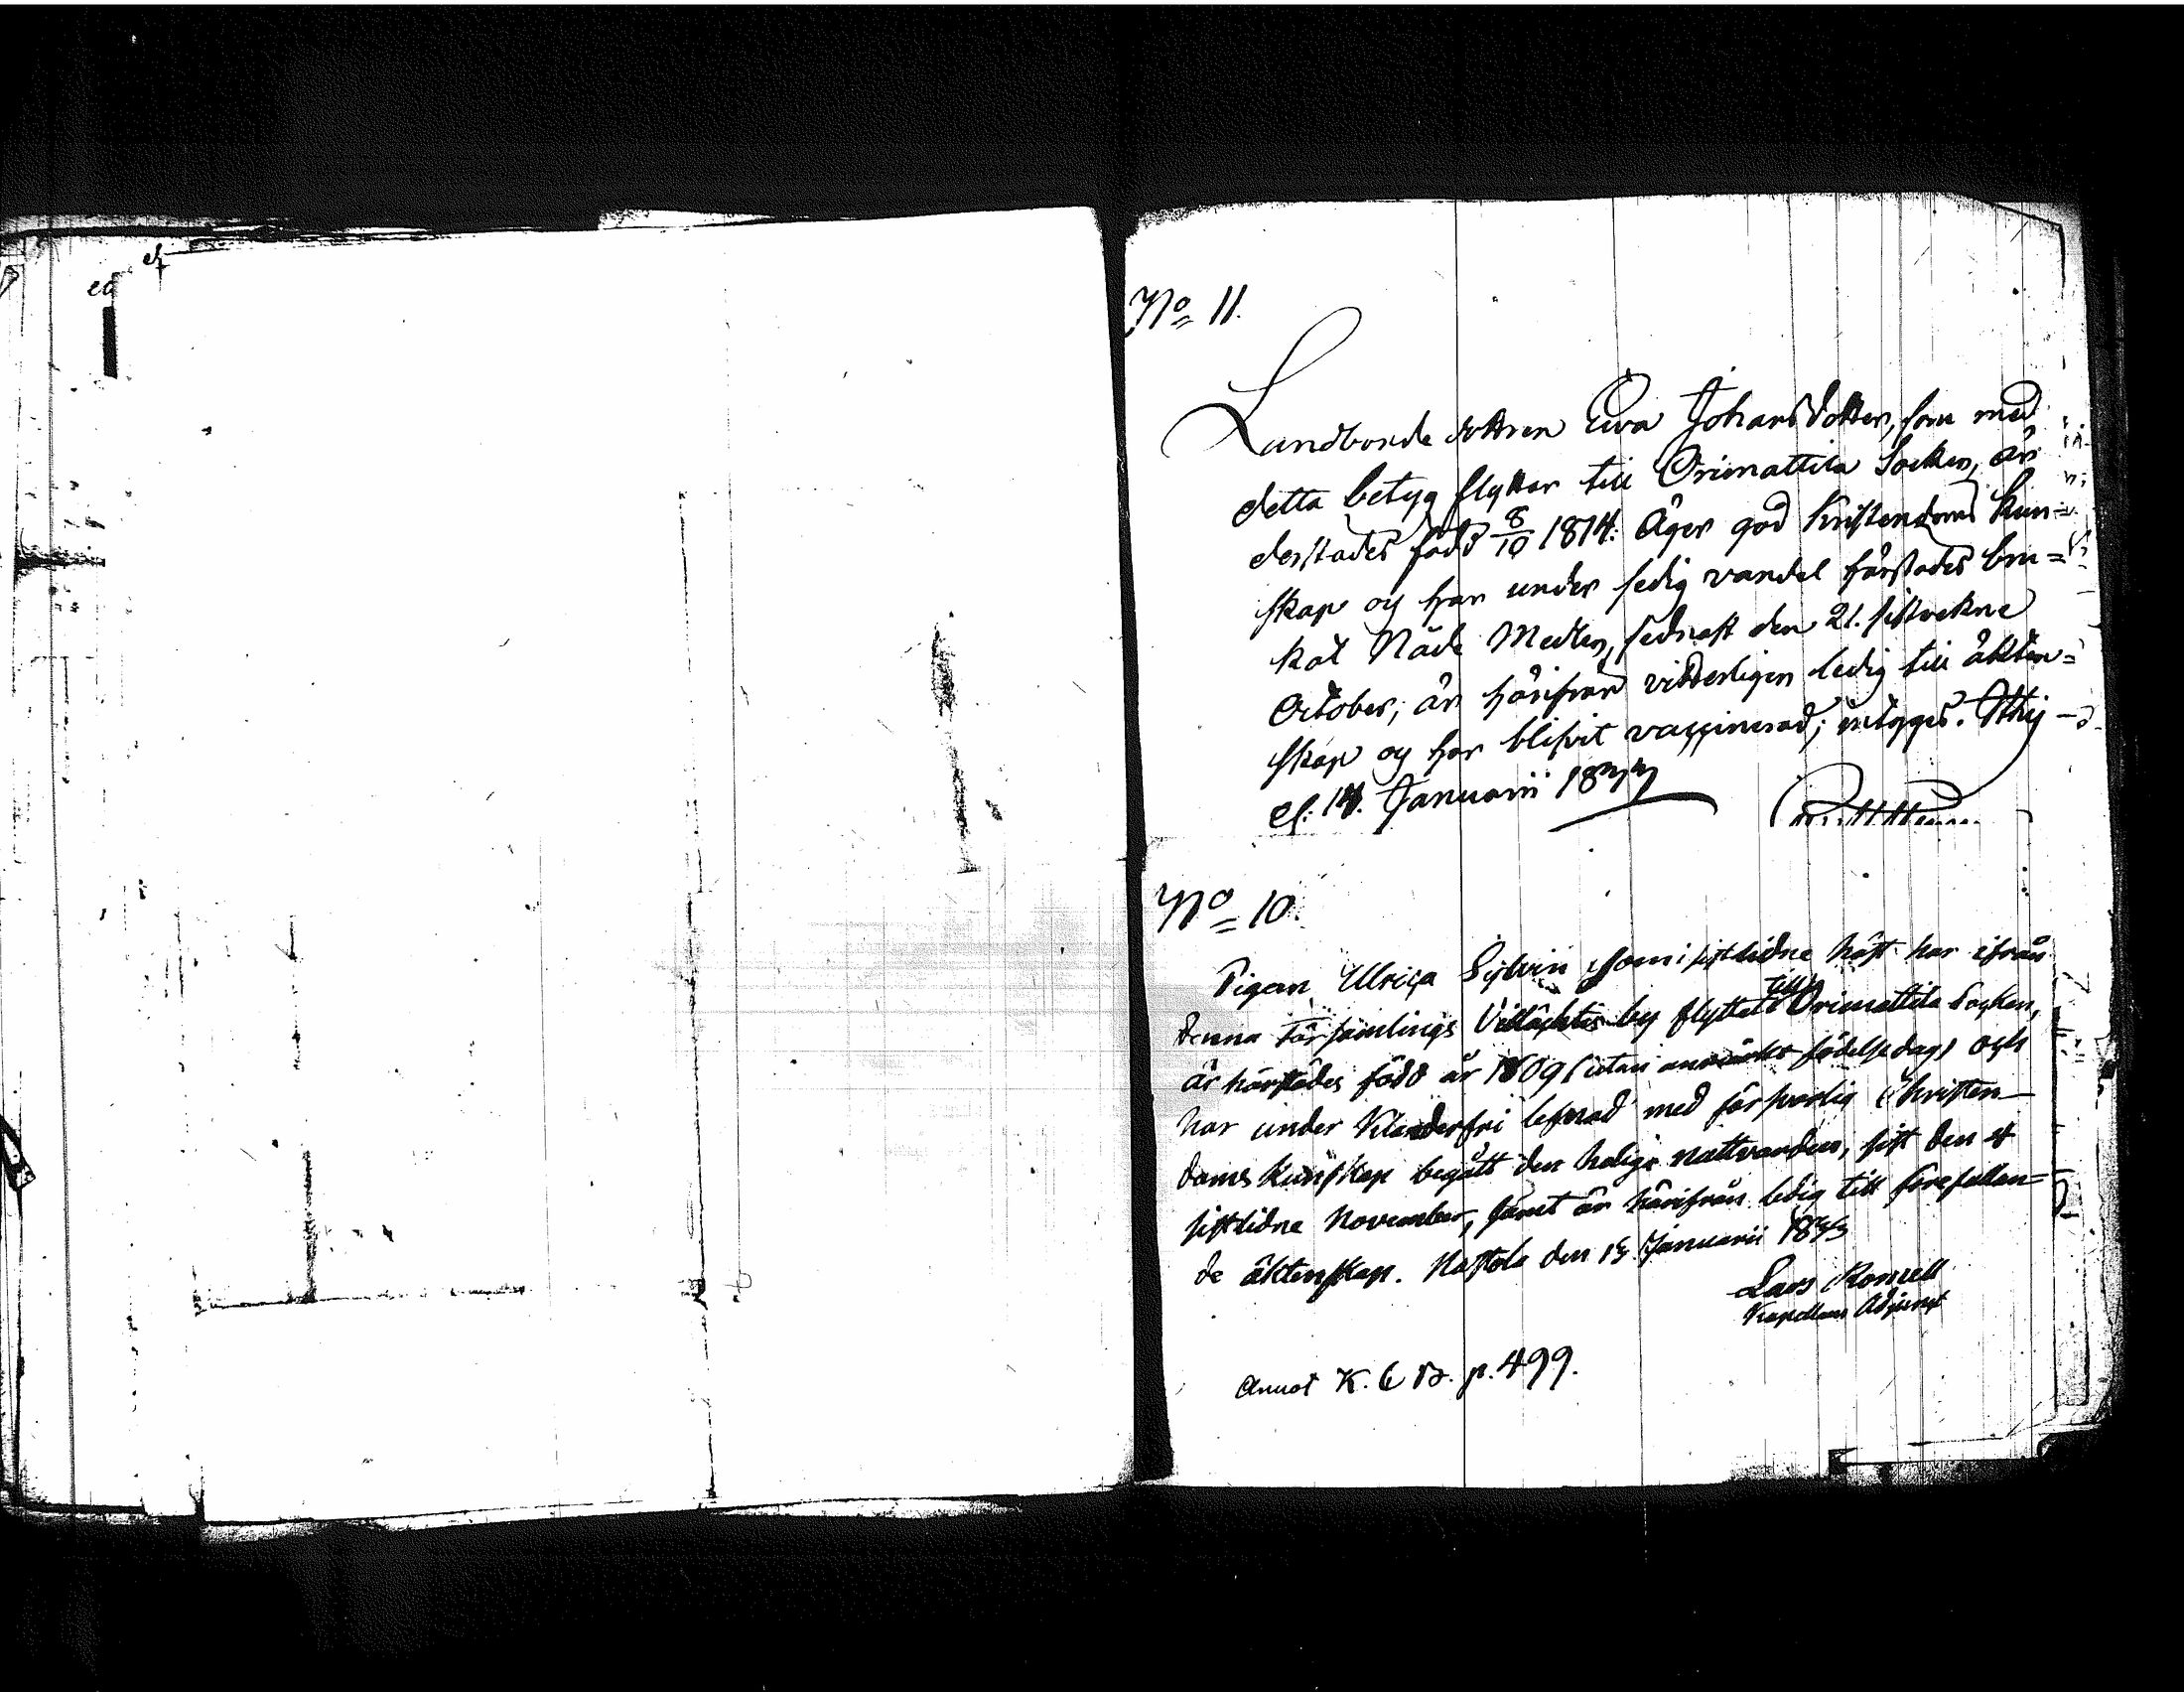 No 11.
Landbonde dottren Eva Johansdotter, som med
detta betyg flyttar till Orimattila Socken, är
derstädes född 8/10 1814. Äger god Kristendoms kun=
skap og har under sedig vandel härstädes bru=
kat Nåde Medlen, sednast den 21. sistvekne
October, är härifrån vitterligen ledig till äkten=
skap og har blifvit vaccinerad; intygas. Itthy
el. 14. Januarii 1833
No 10.
Pigan Ulrica Sylvin som i sistlidne höst har ifrån
denna Församlings Villächtis by flyttat till Orimattila Socken,
är härstädes född år 1809 (utan födelsedag) och
har under Klanderfri lefnad med försvarlig Christen-
doms kunskap begått den heliga nattvarden, sist den 4
sistlidne November, samt är härifrån ledig till förefallan=
de äktenskap. Nastola den 13 Januarii 1833
Lars Homell
Kapellans Adjunct
Annot K. 6 B. p. 499.